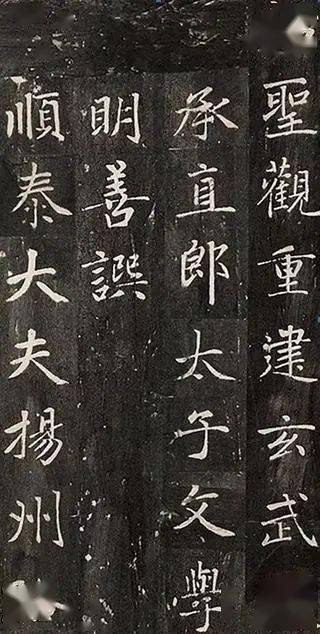 聖觀重建玄武
承直郎太子文學
明善譔
順泰大夫揚州